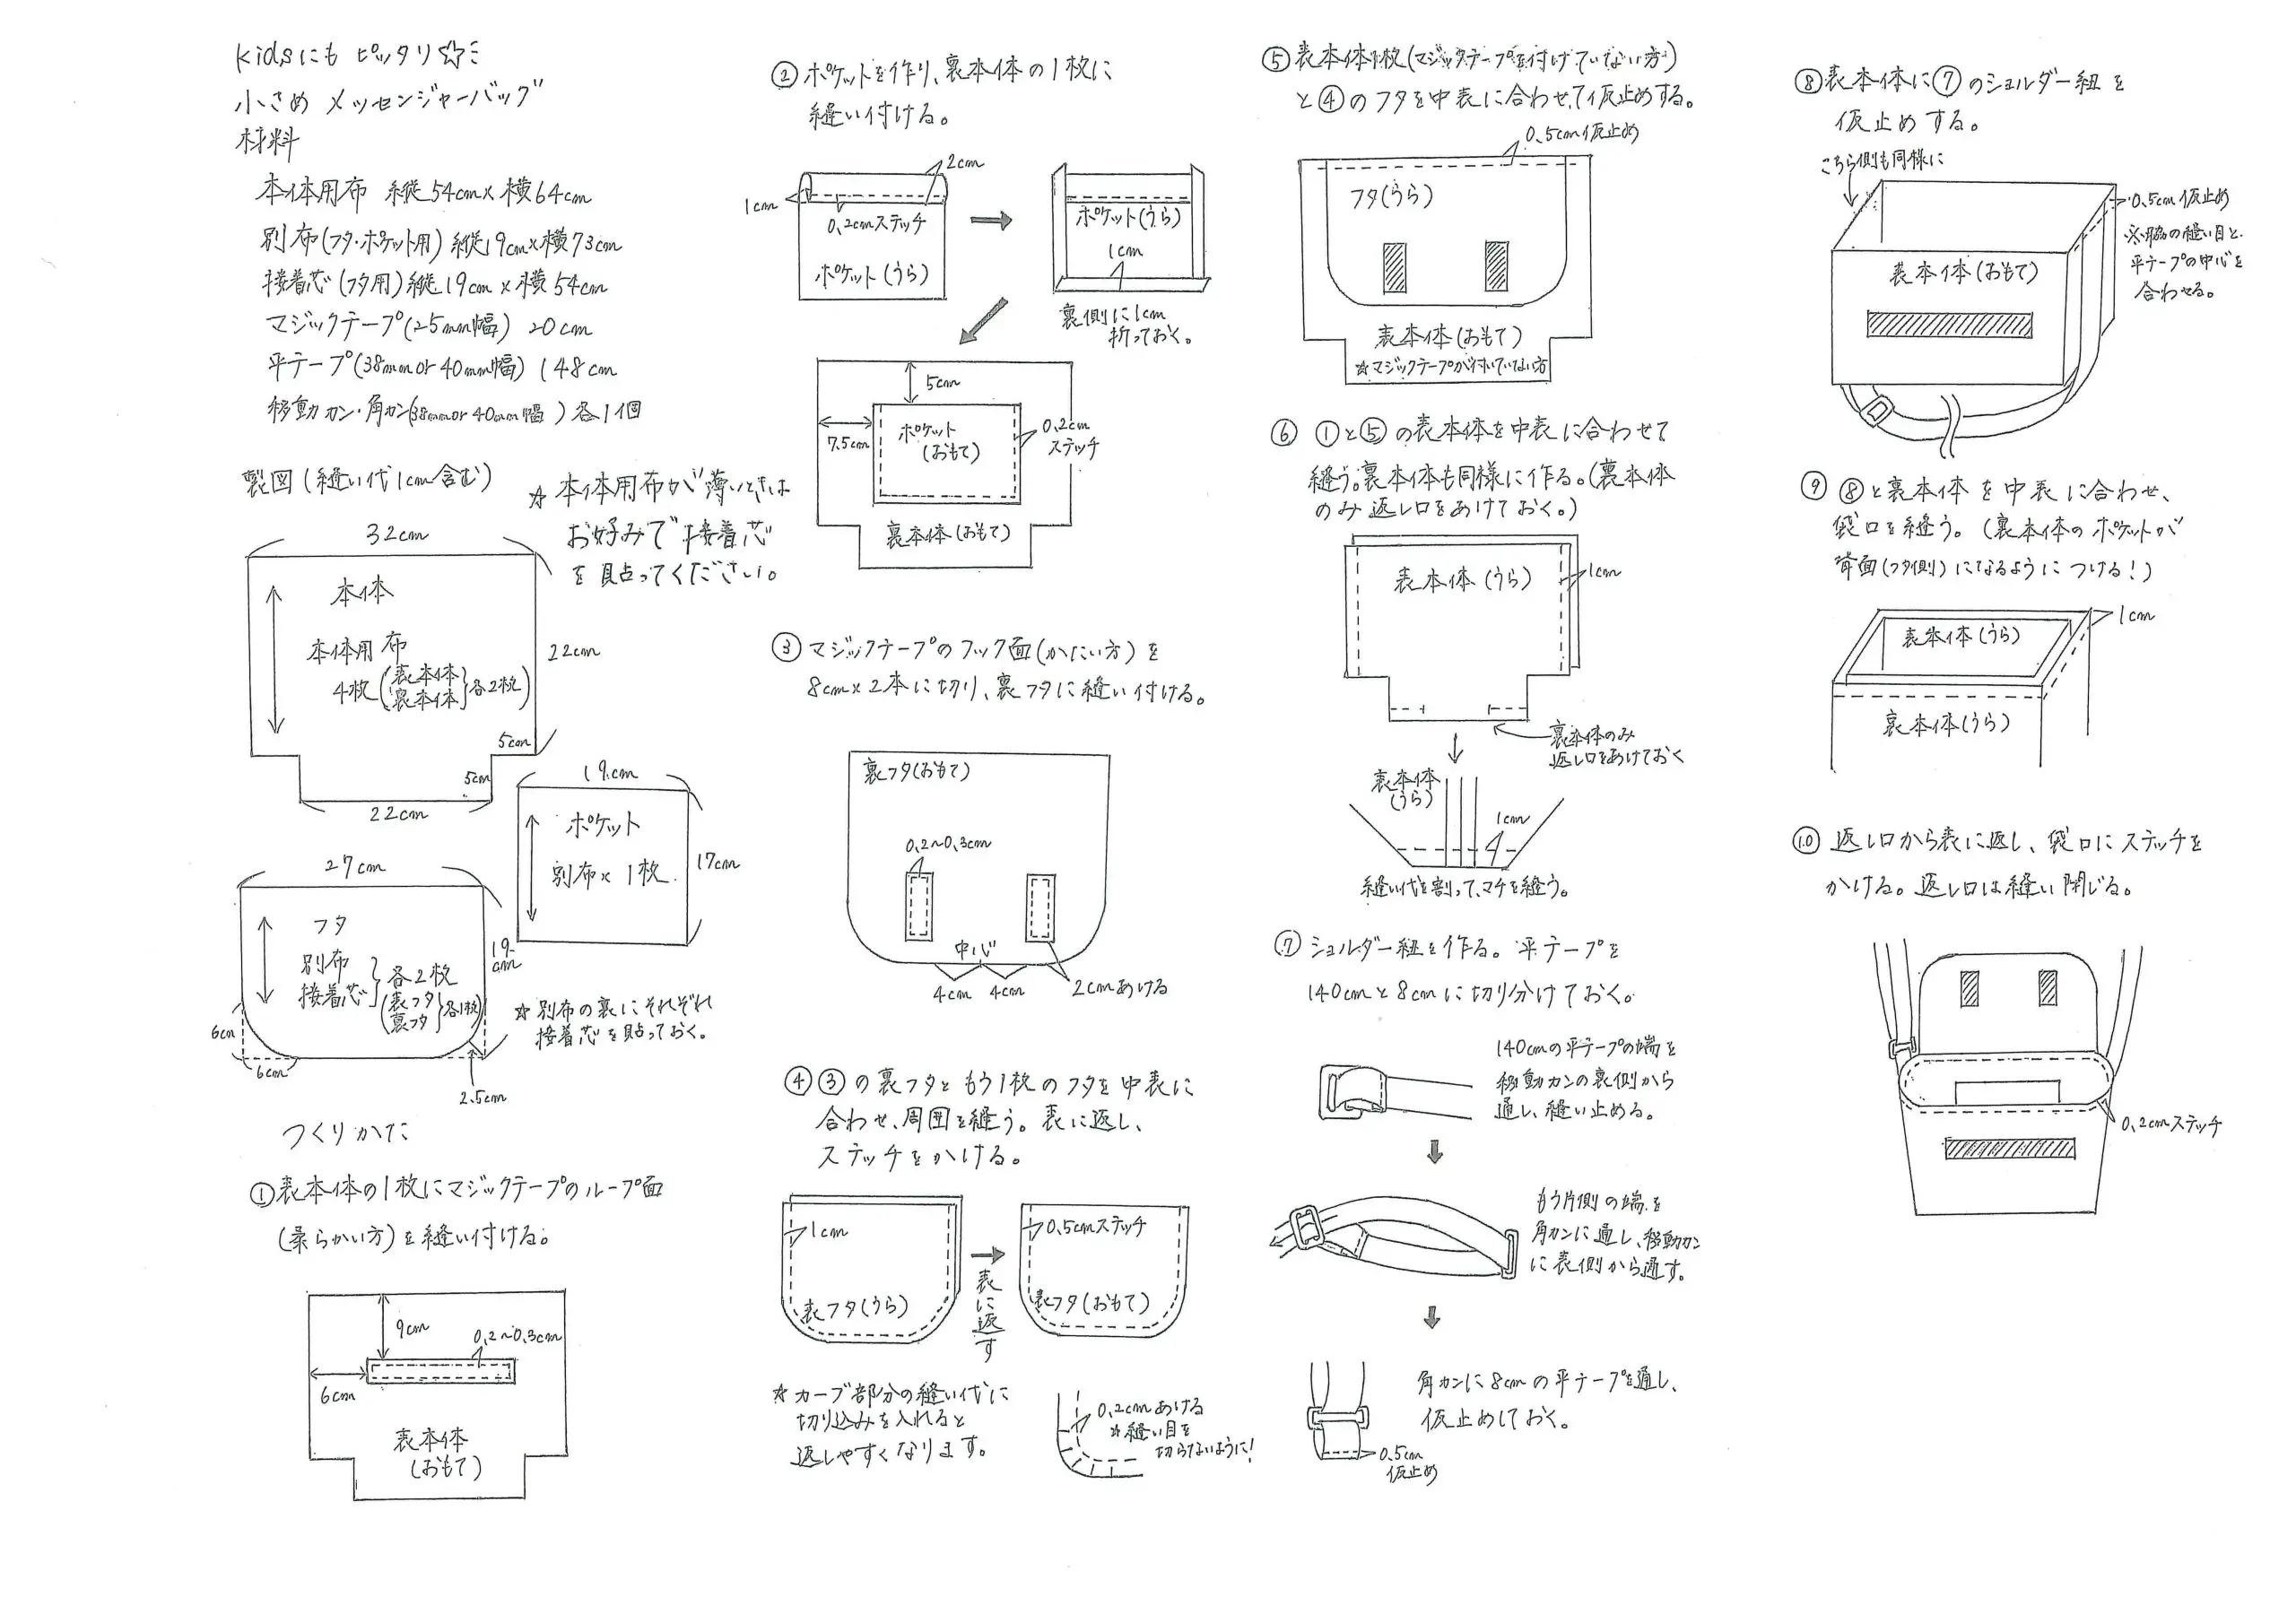 kidsにも ピッタリ☆ミ
小さめ メッセンジャーバッグ
材料
本体用布 縦54cm×横64cm
別布(フタ・ポケット用)縦19cm×横73cm
接着芯(フタ用)縦19cm×横54cm
マジックテープ(25mm幅) 20cm
平テープ(38mm or 40mm幅) 148cm
移動カン・角カン(38mm or 40mm幅)各1個
製図(縫い代1cm含む)
☆本体用布が薄いときは
お好みで接着芯
を貼ってください。
32cm
本体
本体用布
4枚(表本体 裏本体}各2枚)
22cm
5cm
5cm
22cm
19cm
ポケット
別布×1枚
17cm
27cm
フタ
別布
接着芯}各2枚
(表フタ 裏フタ}各1枚)
19cm
6cm
6cm
2.5cm
☆別布の裏にそれぞれ
接着芯を貼っておく。
つくりかた
①表本体の1枚にマジックテープのループ面
(柔らかい方)を縫い付ける。
9cm
0.2~0.3cm
6cm
表本体
(おもて)
②ポケットを作り、裏本体の1枚に
縫い付ける。
2cm
1cm
0.2cmステッチ
ポケット(うら)
ポケット(うら)
1cm
裏側に1cm
折っておく。
5cm
7.5cm
ポケット
(おもて)
0.2cm
ステッチ
裏本体(おもて)
③マジックテープのフック面(かたい方)を
8cm×2本に切り、裏フタに縫い付ける。
裏フタ(おもて)
0.2~0.3cm
中心
4cm 4cm
2cmあける
④③の裏フタともう1枚のフタを中表に
合わせ、周囲を縫う。表に返し、
ステッチをかける。
1cm
表フタ(うら)
表に返す
0.5cmステッチ
表フタ(おもて)
☆カーブ部分の縫い代に
切り込みを入れると
返しやすくなります。
0.2cmあける
☆縫い目を
切らないように!
⑤表本体1枚(マジックテープを付けていない方)
と④のフタを中表に合わせて仮止めする。
0.5cm仮止め
フタ(うら)
表本体(おもて)
☆マジックテープが付いていない方
⑥ ①と⑤の表本体を中表に合わせて
縫う。裏本体も同様に作る。(裏本体
のみ返し口をあけておく。)
表本体(うら)
1cm
裏本体のみ
返し口をあけておく
表本体
(うら)
1cm
縫い代を割って、マチを縫う。
⑦ショルダー紐を作る。平テープを
140cmと8cmに切り分けておく。
140cmの平テープの端を
移動カンの裏側から
通し、縫い止める。
もう片側の端を
角カンに通し、移動カン
に表側から通す。
角カンに8cmの平テープを通し、
仮止めしておく。
0.5cm
仮止め
⑧表本体に⑦のショルダー紐を
仮止めする。
こちら側も同様に
0.5cm仮止め
※脇の縫い目と、
平テープの中心を
合わせる。
表本体(おもて)
⑨ ⑧と裏本体を中表に合わせ、
袋口を縫う。(裏本体のポケットが
背面(フタ側)になるようにつける!)
1cm
表本体(うら)
裏本体(うら)
⑩ 返し口から表に返し、袋口にステッチを
かける。返し口は縫い閉じる。
0.2cmステッチ